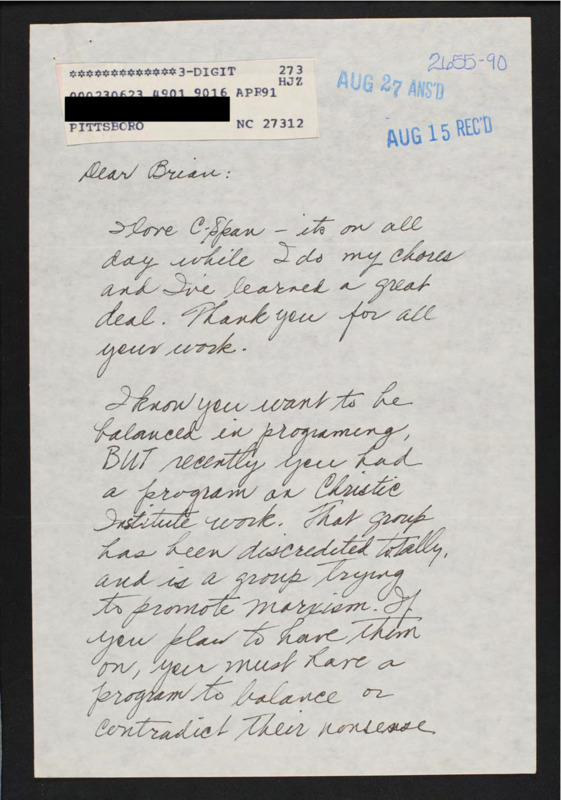 *************3-DIGIT 273
HJZ
000230623 4901 9016 APR91
PITTSBORO NC 27312
2655-90
AUG 27 ANS'D
AUG 15 REC'D
Dear Brian:
I love C-Span – its on all
day while I do my chores
and I've learned a great
deal. Thank you for all
your work.
I know you want to be
balanced in programing,
BUT recently you had
a program on Christic
Institute work. That group
has been discredited totally,
and is a group trying
to promote marxism. If
you plan to have them
on, your must have a
program to balance or
contradict their nonsense